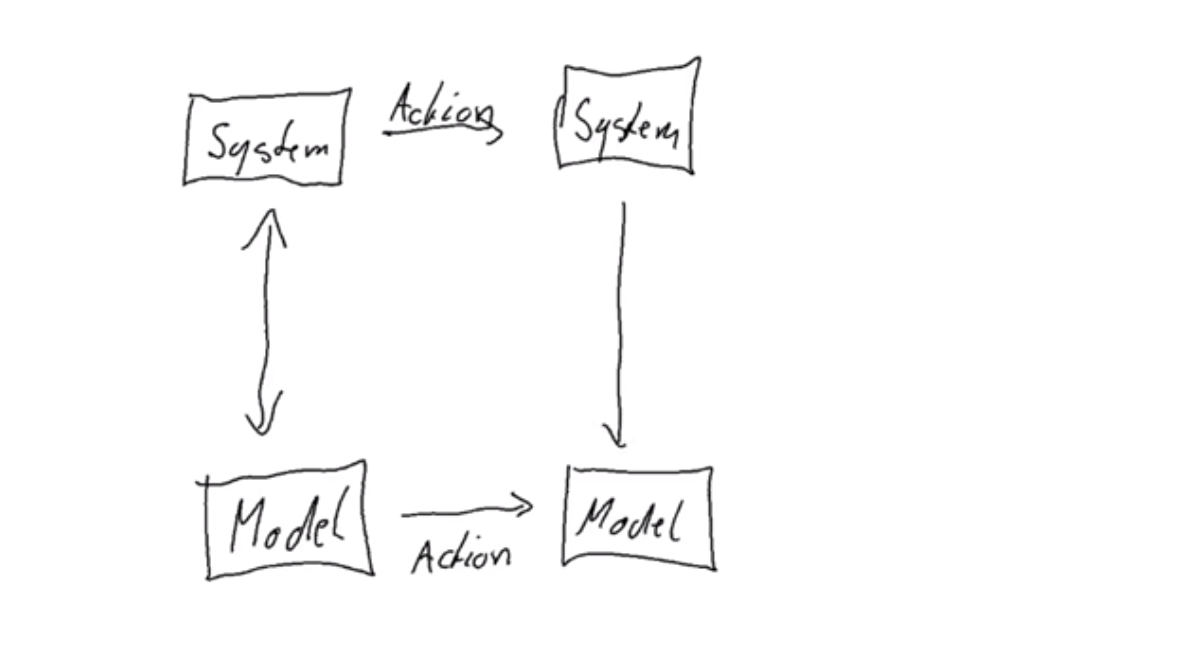 System
Action
System
Model
Action
Model